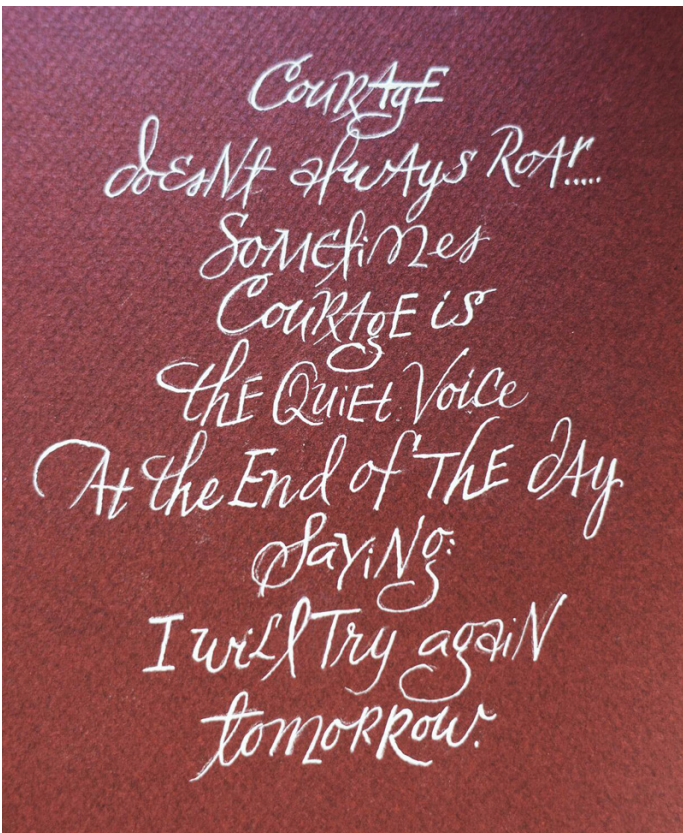 Courage
doesn't always Roar.....
Sometimes
Courage is
the Quiet Voice
At the End of The day
Saying:
I will Try again
tomorrow.